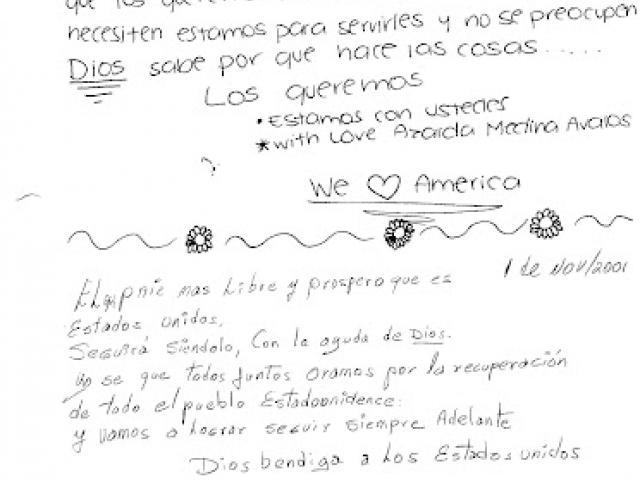 necesiten estamos para servirles y no se preocupen
Dios sabe por que hace las cosas.....
Los queremos
• Estamos con ustedes
* with Love Azaida Medina Avalos
We ♡ America
1 de NOV/2001
mas Libre y prospero que es
Estados unidos,
Seguirá Siendolo, Con la ayuda de Dios.
yo se que todos juntos oramos por la recuperación
de todo el pueblo Estadounidence:
y vamos a lograr seguir siempre Adelante
Dios bendiga a los Estados unidos